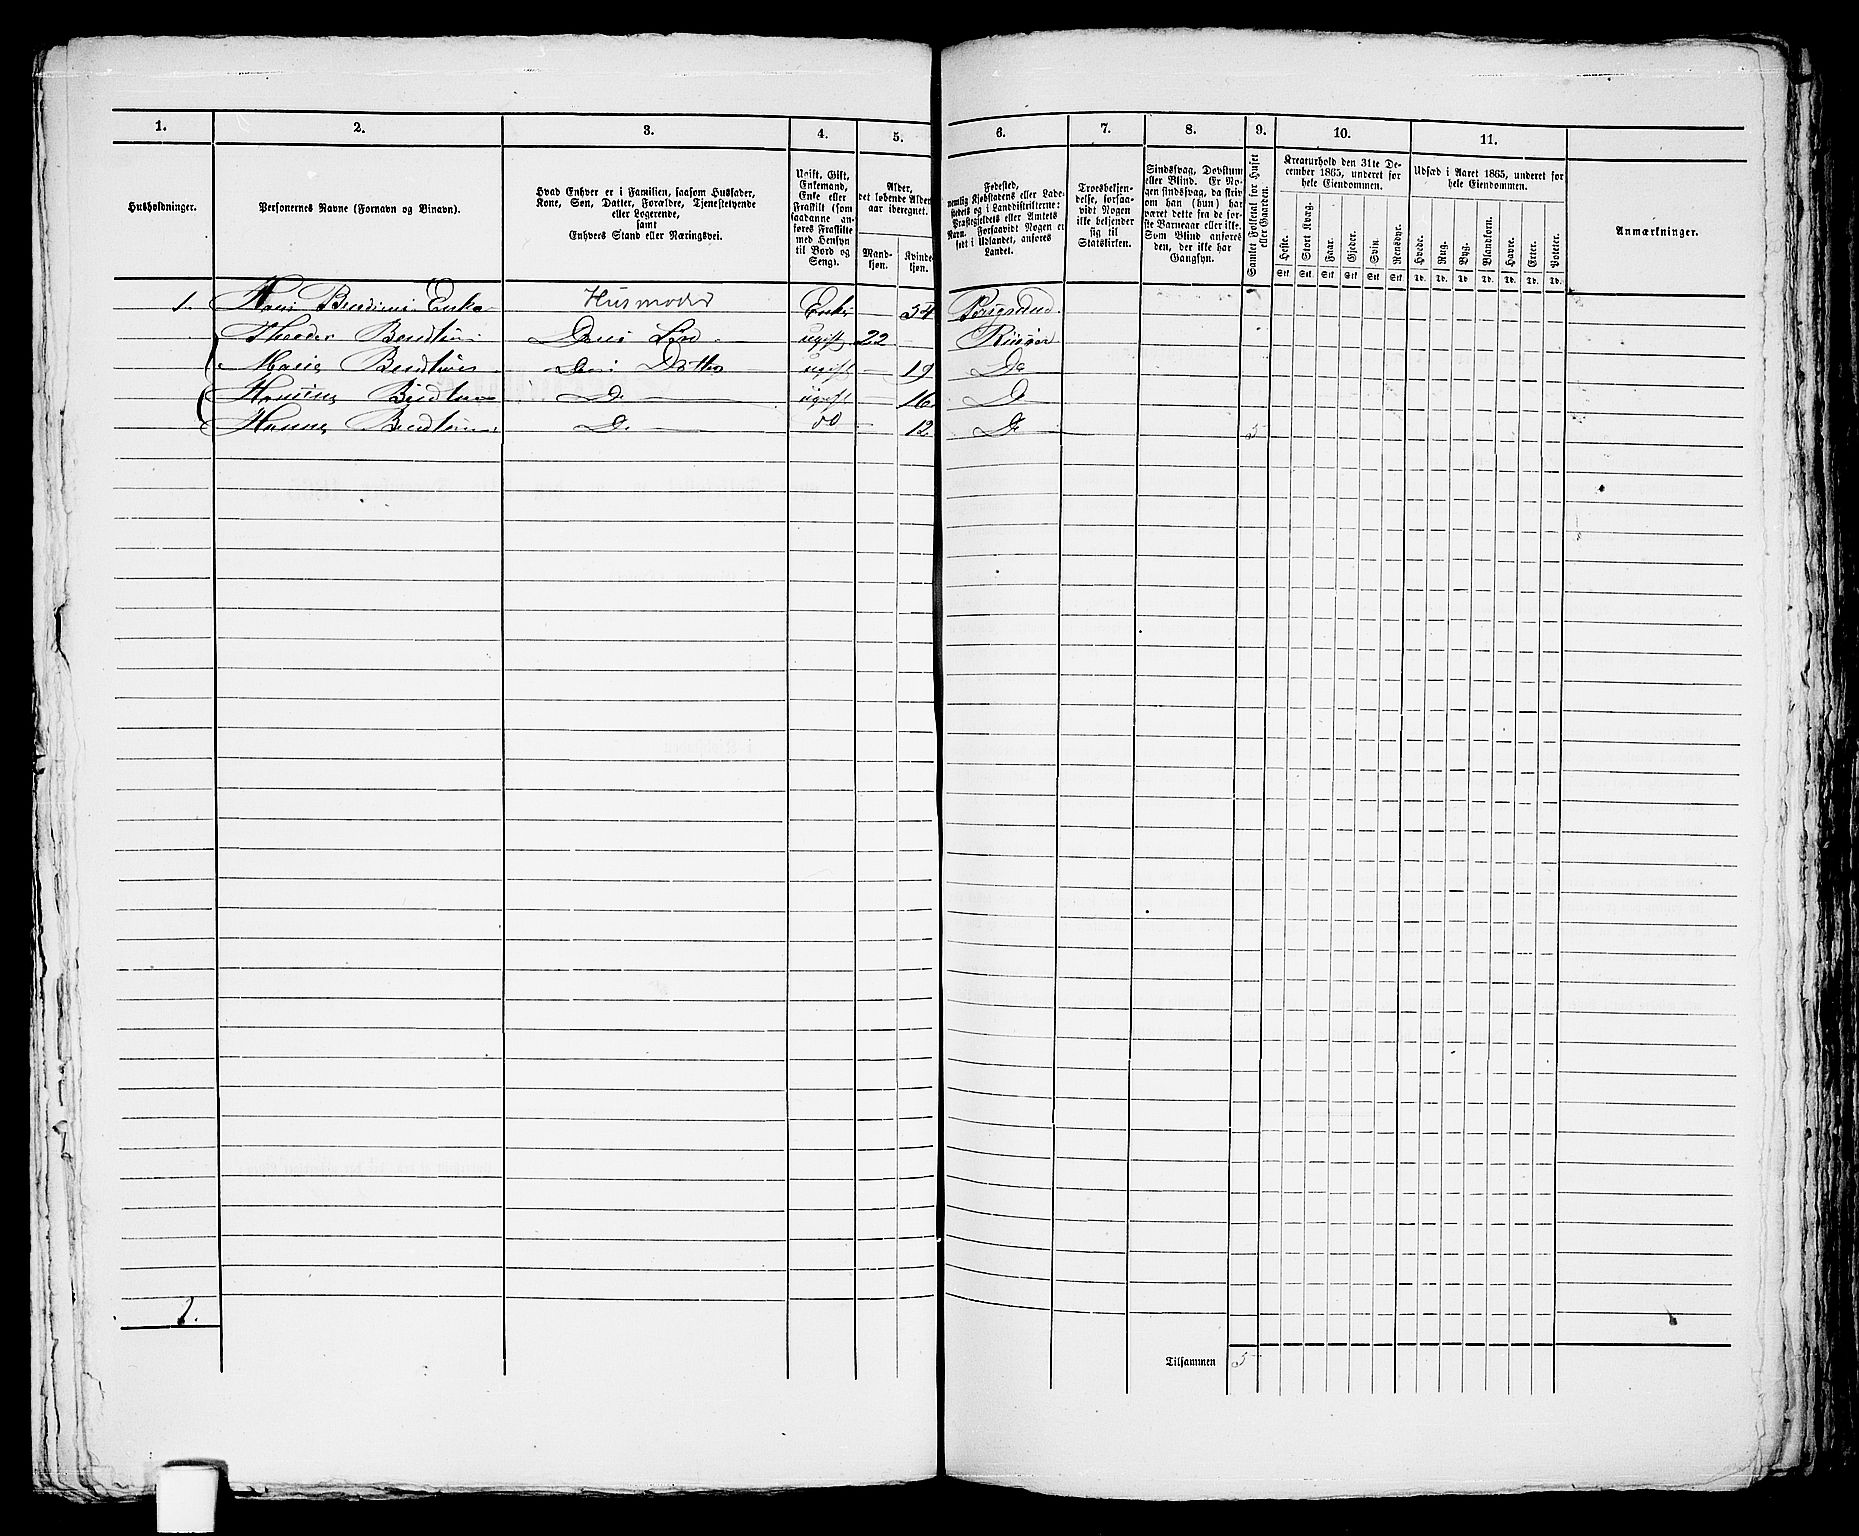 1. 2. 3. 4. 5. 6. 7. 8. 9. 10. 11.
Husholdninger.
Personernes Navne (Fornavn og Binavn).
Hvad Enhver er i Familien, saasom Husfader,
Kone, Søn, Datter, Forældre, Tjenestetyende
eller Logerende,
samt
Enhvers Stand eller Næringsvei.
Ugift, Gift,
Enkemand,
Enke eller
Fraskilt (som
saadanne an-
føres Fraskilte
med Hensyn
til Bord og
Seng).
Alder,
det løbende Alders-
aar iberegnet.
Mand-
kjøn.
Kvinde-
kjøn.
Fødested,
nemlig Kjøbstadens eller Lade-
stedets og i Landdistrikterne:
Præstegjeldets eller Amtets
Navn. Forsaavidt Nogen er
født i Udlandet, anføres
Landet.
Troesbekjen-
delse, forsaa-
vidt Nogen
ikke bekjender
sig til
Statskirken.
Sindssvag, Døvstum
eller Blind. Er No-
gen sindssvag, da skriv
om han (hun) har
været dette fra de før-
ste Barneaar eller ikke.
Som Blind anføres
den, der ikke har
Gangsyn.
Samlet Folketal for Huset
eller Gaarden.
Kreaturhold den 31te De-
cember 1865, underet for
hele Eiendommen.
Heste. Stort Kvæg. Faar. Gjeder. Svin. Rensdyr.
Stk Stk Stk Stk Stk Stk
Udsæd i Aaret 1865, underet for
hele Eiendommen.
Hvede. Rug. Byg. Blandkorn. Havre. Erter. Poteter.
Td. Td. Td. Td. Td. Td. Td.
Anmærkninger.
1. Husmoder Enke — 54
Theodor ugift 22 — Risøer
Marie Datter ugift — 19 Do
D. ugift — 16 D
Hanne D. do — 12 Do 5
1.
Tilsammen 5